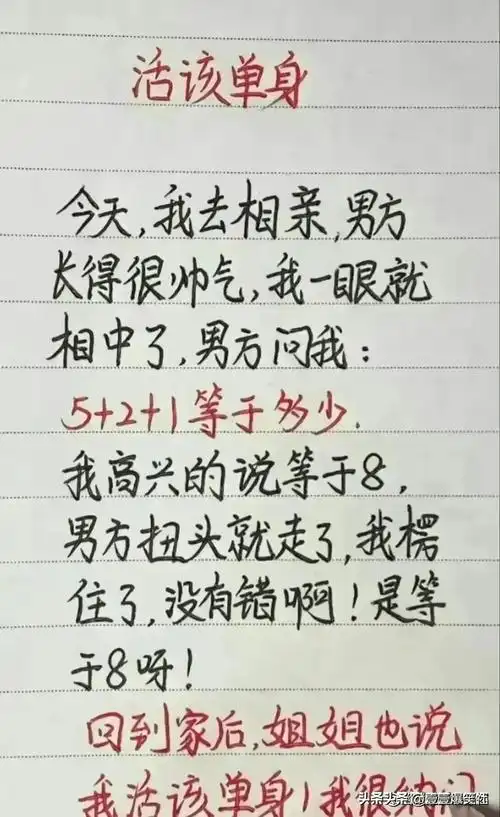 活该单身
今天,我去相亲,男方
长得很帅气,我一眼就
相中了,男方问我:
5+2+1等于多少.
我高兴的说等于8,
男方扭头就走了,我楞
住了,没有错啊!是等
于8呀!
回到家后,姐姐也说
我活该单身!我很纳闷
头条头条@壹壹爆笑猫